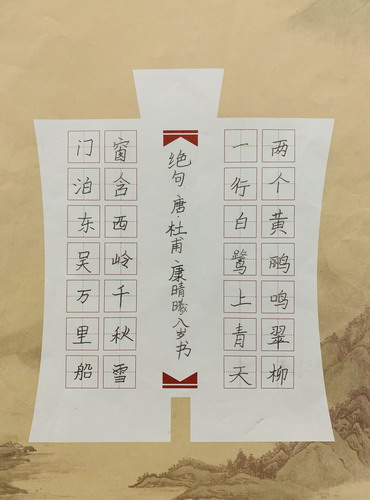 两个黄鹂鸣翠柳
一行白鹭上青天
绝句·唐·杜甫·康晴曦八岁书
窗含西岭千秋雪
门泊东吴万里船